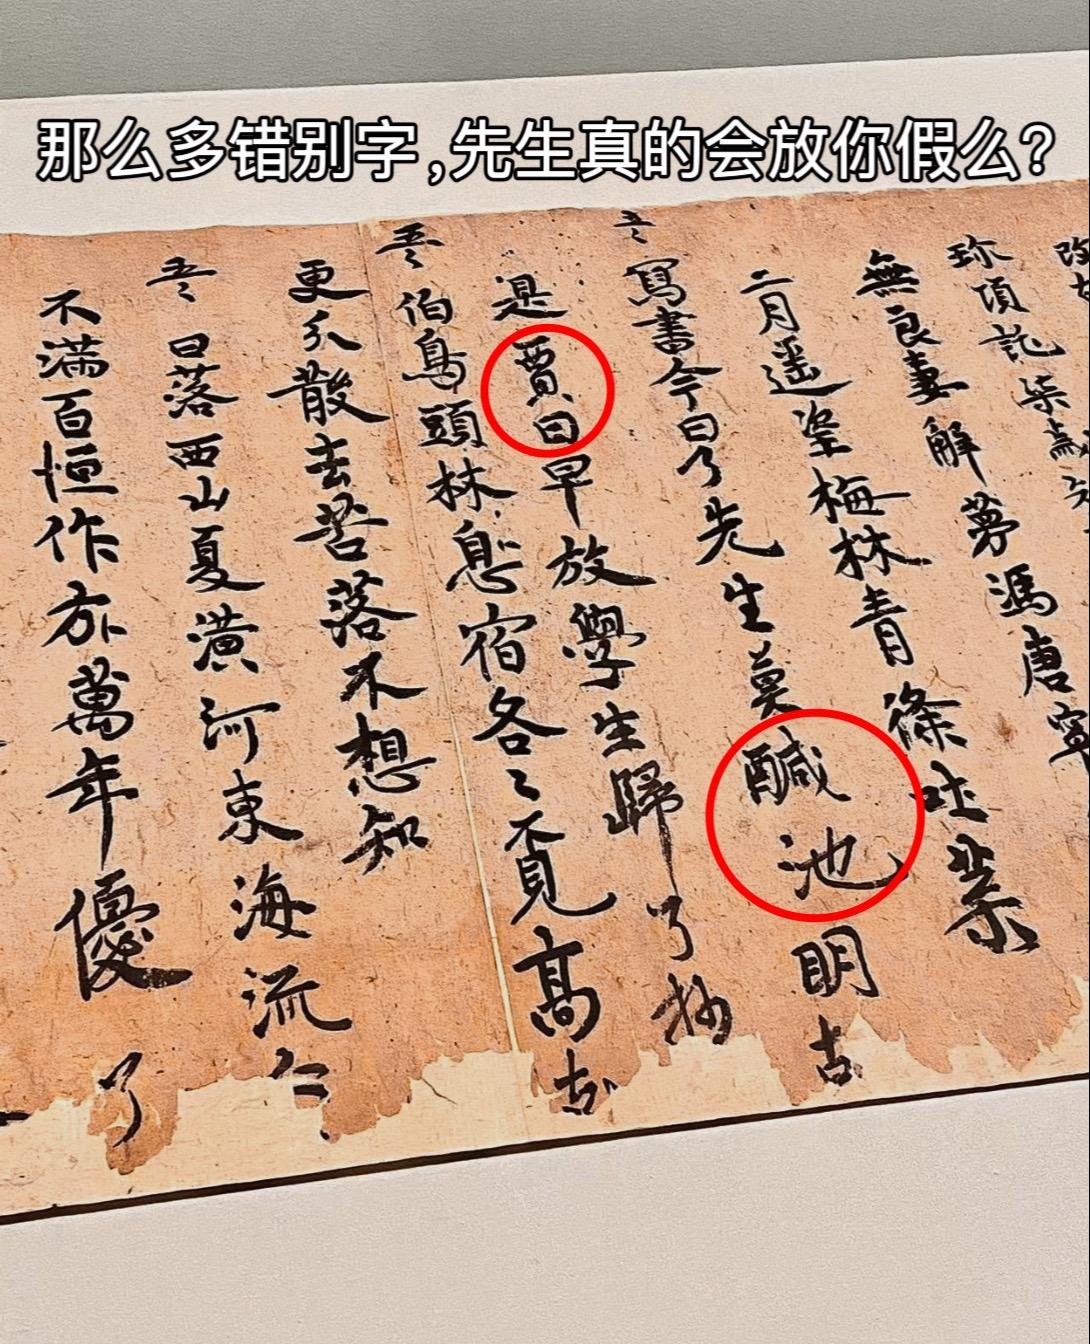 那么多错别字,先生真的会放你假么?
珎項託柒歲
無良妻解夢馮唐寧
二月遥望梅林青條吐葉
五言 寫書今日了先生莫醎池明
是賈日早放學生歸了抄
五言 伯鳥頭林息宿各々覓高
更分散去苦落不想知
五言 日落西山夏潢河東海流仁々
不滿百恒作方萬年優了